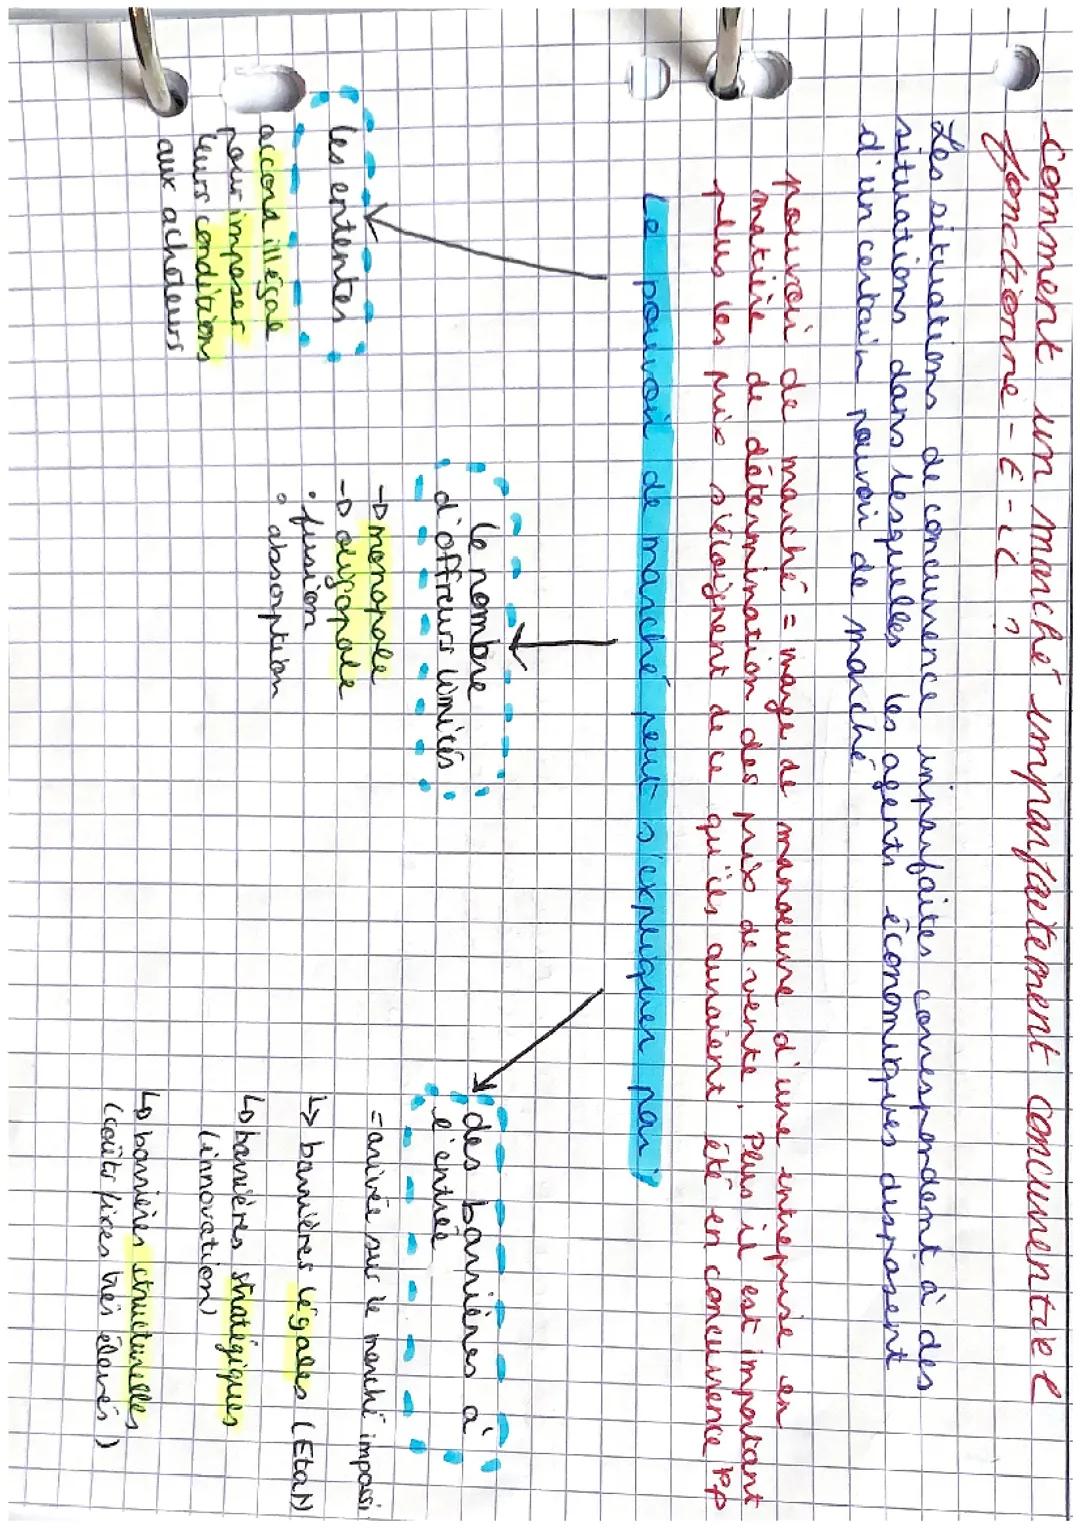 Comment un marché imparfaitement concurrentiel
fonctionne-t-il ?
Les situations de concurrence imparfaites correspondent à des
situations dans lesquelles les agents économiques disposent
d'un certain pouvoir de marché
pouvoir de marché = marge de manoeuvre d'une entreprise en
matière de détermination des prix de vente. Plus il est important
plus les prix s'éloignent de ce qu'ils auraient été en concurrence pp
Le pouvoir de marché peut s'expliquer par :
les ententes
accord illégal
pour imposer
leurs conditions
aux acheteurs
le nombre
d'offreurs limités
→ monopole
→ oligopole
• fusion
• absorption
des barrières à
l'entrée
= arrivée sur le marché impossi
↳ barrières légales (Etat)
↳ barrières stratégiques
(innovation)
↳ barrières structurelles
(coûts fixes très élevés)